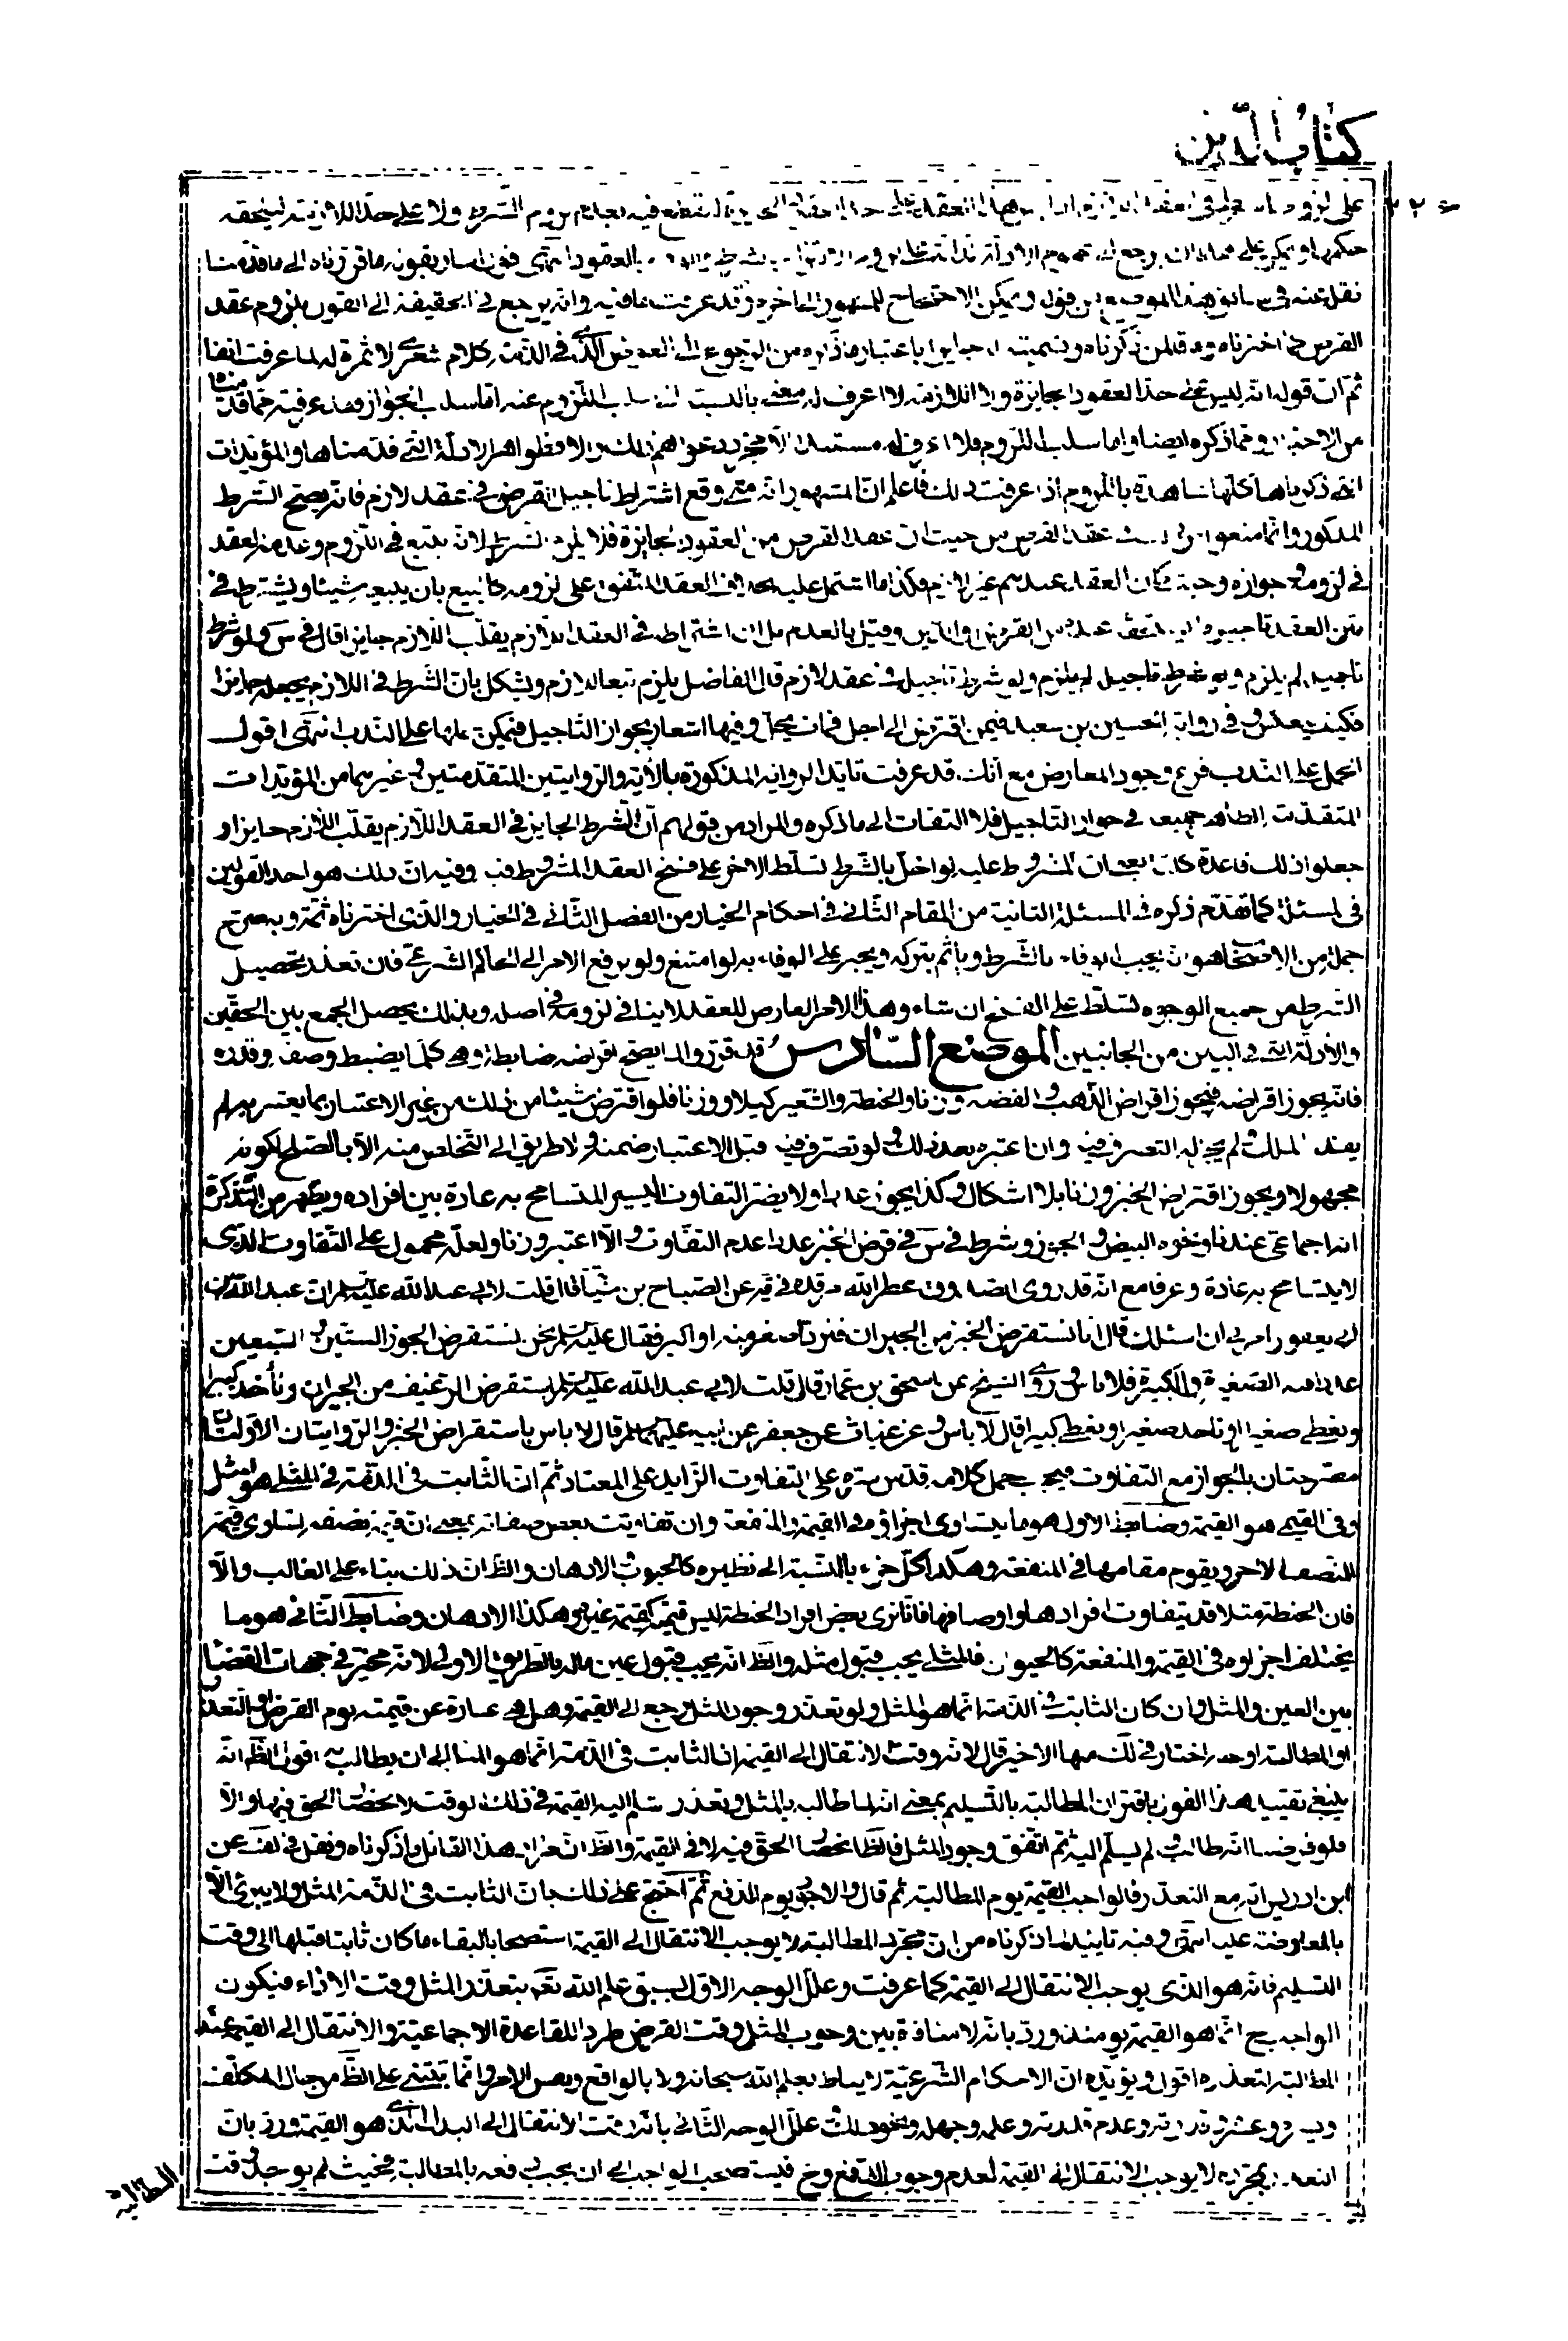 كتاب الدين
على حد اللازمة ليلحقه
حكمها
نقل عنه ويمكن الاحتجاج للمشهور وقد عرفت ما فيه وانه يرجع في الحقيقة الى القول بلزوم عقد
القرض كما اخترناه في الذمة كلام شعرى لا ثمرة له لما عرفت انفا
ثم ان قوله انه ليس على حد العقود الجايزة ولا اللازمة لا اعرف له معنى بالنسبة الى سلب اللزوم عنه اما سلب الجواز فقد عرفته مما قدمناه
من الاخبار ومما ذكره ايضا واما سلب اللزوم فلا اعرف له مستندا الا مجرد دعواهم ذلك والا فظواهر الادلة التي قدمناها والمؤيدات
التي ذكرناها كلها شاهدة باللزوم اذا عرفت ذلك فاعلم ان المشهور انه متى وقع اشتراط تاجيل القرض في عقد لازم فانه يصح الشرط
المذكور وانما منعوا عقد القرض من حيث ان عقد القرض من العقود الجايزة فلا يلزم الشرط لانه يتبع في اللزوم وعدمه العقد
في لزومه وجوازه وحيث كان العقد عندهم غير لازم فكذا ما اشتمل عليه بخلاف العقد المتفق على لزومه كالبيع بان يبيعه شيئا ويشترط في
متن العقد تاجيل القرض والدين وقيل بالعدم بل ان اشتراطه في العقد اللازم يقلب اللازم جايزا قال في س ولو شرط
تاجيله لم يلزم ولو شرط تاجيل لم يلزم ولو شرط تاجيله في عقد لازم قال الفاضل يلزم تبعا للازم ويشكل بان الشرط في اللازم يجعله جايزا
فكيف يعكس وفي رواية الحسين بن سعيد فيمن اقترض الى اجل فمات يحل وفيها اشعار بجواز التاجيل فيمكن حملها على الندب انتهى اقول
الحمل على الندب فرع وجود المعارض مع انك قد عرفت تايد الرواية المذكورة بالاية والروايتين المتقدمتين وغيرهما من المؤيدات
المتقدمة الظاهر جميعه في جواز التاجيل فلا التفات الى ما ذكره والمراد من قولهم ان الشرط الجايز في العقد اللازم يقلب اللازم جايزا و
جعلوا ذلك قاعدة كلية يعنى ان المشروط عليه لو اخل بالشرط تسلط الاخر على فسخ العقد المشروط فيه وفيه ان ذلك هو احد القولين
في المسئلة كما تقدم ذكره في المسئلة الثانية من المقام الثاني في احكام الخيار من الفصل الثاني في الخيار والذى اخترناه ثمة وبه صرح
جملة من الاصحاب هو انه يجب الوفاء بالشرط وياثم بتركه ويجبر على الوفاء به لو امتنع ولو برفع الامر الى الحاكم الشرعى فان تعذر تحصيل
الشرط من جميع الوجوه تسلط على الفسخ ان شاء وهذا الامر العارض للعقد لا ينافي لزومه في اصله وبذلك يحصل الجمع بين الحقين
والادلة في البين من الجانبين الموضع السادس قد قرروا لما يصح اقراضه ضابطة وهي كلما يضبط وصفه وقدره
فانه يجوز اقراضه فيجوز اقراض الذهب والفضة وزنا والحنطة والشعير كيلا ووزنا فلو اقترض شيئا من ذلك من غير الاعتبار بما يعتبر به لم
يفد الملك ولم يجز له التصرف فيه وان اعتبره بعد ذلك ولو تصرف فيه قبل الاعتبار ضمنه ولا طريق الى التخلص منه الا بالصلح لكونه
مجهولا ويجوز اقتراض الخبز وزنا بلا اشكال وكذا يجوز عددا ولا يضر التفاوت اليسير المتسامح به عادة بين افراده ويظهر من التذكرة
انه اجماعى عندنا ونحوه البيض والجوز وشرط في س في قرض الخبز عددا عدم التفاوت والا اعتبر وزنا ولعله محمول على التفاوت الذى
لا يتسامح به عادة وعرفا مع انه قد روى الصدوق عطر الله مرقده في يه عن الصباح بن سيابة قال قلت لابي عبد الله عليه السلم ان عبد الله بن
ابي يعفور امرني ان اسئلك قال انا نستقرض الخبز من الجيران فنرد اصغر منه او اكبر فقال عليه السلم نحن نستقرض الجوز الستين والسبعين
عددا فيه الصغيرة والكبيرة فلا باس وروى الشيخ عن اسحق بن عمار قال قلت لابي عبد الله عليه السلم استقرض الرغيف من الجيران ونأخذ كبيرا
ونعطى صغيرا او ناخذ صغيرا ونعطى كبيرا قال لا باس وعن غياث عن جعفر عن ابيه عليهما السلم قال لا باس باستقراض الخبز والروايتان الاولتان
مصرحتان بالجواز مع التفاوت فيجب حمل كلامه قدس سره على التفاوت الزايد على المعتاد ثم ان الثابت في الذمة في المثلى هو المثل
وفي القيمى هو القيمة وضابط الاول هو ما يتساوى اجزاؤه في القيمة والمنفعة وان تفاوتت بعض صفاته بمعنى ان قيمة نصفه تساوى قيمة
النصف الاخر ويقوم مقامها في المنفعة وهكذا كل جزء بالنسبة الى نظيره كالحبوب والادهان والظ ان ذلك بناء على الغالب والا
فان الحنطة مثلا قد يتفاوت افرادها واوصافها فانا نرى بعض افراد الحنطة ليس قيمته كقيمة غيره وهكذا الادهان وضابط الثاني هو ما
يختلف اجزاؤه في القيمة والمنفعة كالحيوان فالمثلى يجب قبول مثله والظ انه يجب قبول عين ماله بالطريق الاولى لانه مخير في جهات القضاء
بين العين والمثل وان كان الثابت في الذمة انما هو المثل ولو تعذر وجود المثل رجع الى القيمة وهل هي عبارة عن قيمته يوم القرض او التعذر
او المطالبة اوجه اختار في لك منها الاخير قال لانه وقت الانتقال الى القيمة اذ الثابت في الذمة انما هو المثل الى ان يطالب به اقول الظ انه
ينبغى تقييد هذا القول باقتران المطالبة بالتسليم بمعنى انه لما طالب بالمثل وتعذر سلم اليه القيمة في ذلك الوقت لانحصار الحق فيها والا
فلو فرضنا انه طالب ولم يسلم اليه ثم اتفق وجود المثل فالظ انحصار الحق فيه لا في القيمة والظ ان هذا القائل ما ذكرناه ونقل في لف عن
ابن ادريس انه مع التعذر فالواجب القيمة يوم المطالبة ثم قال والاجود يوم الدفع ثم احتج على ذلك بان الثابت في الذمة المثل ولا يبرئ الا
بالمعاوضة عليه انتهى وفيه تاييد لما ذكرناه من ان مجرد المطالبة لا يوجب الانتقال الى القيمة استصحابا لبقاء ما كان ثابتا قبلها الى وقت
التسليم فانه هو الذى يوجب الانتقال الى القيمة كما عرفت وعلل الوجه الاول بسبق علم الله تعم بتعذر المثل وقت الاداء فيكون
الواجب ح انما هو القيمة يومئذ ورد بانه لا منافاة بين وجوب المثل وقت القرض طردا للقاعدة الاجماعية والانتقال الى القيمة عند
المطالبة لتعذره اقول ويؤيده ان الاحكام الشرعية لا يناط بعلم الله سبحانه ولا بالواقع ونفس الامر وانما تبتنى على الظ من حال المكلف
وعدم قدرته وعلمه وجهله ونحو ذلك وعلل الوجه الثاني بانه وقت الانتقال الى البدل الذى هو القيمة ورد بان
التعذر بمجرده لا يوجب الانتقال الى القيمة لعدم وجوب الدفع وح فيستصحب الواجب الى ان يجب دفعه بالمطالبة فحيث لم يوجد وقت
المطالبة